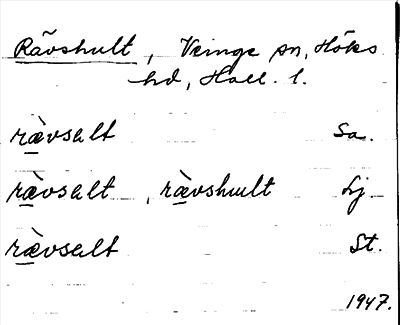 Rävshult, Veinge sn, Höks
hd, Hall. l.
rävsalt Sa.
rävsalt, rävshult Lj.
rävsalt St.
1947.